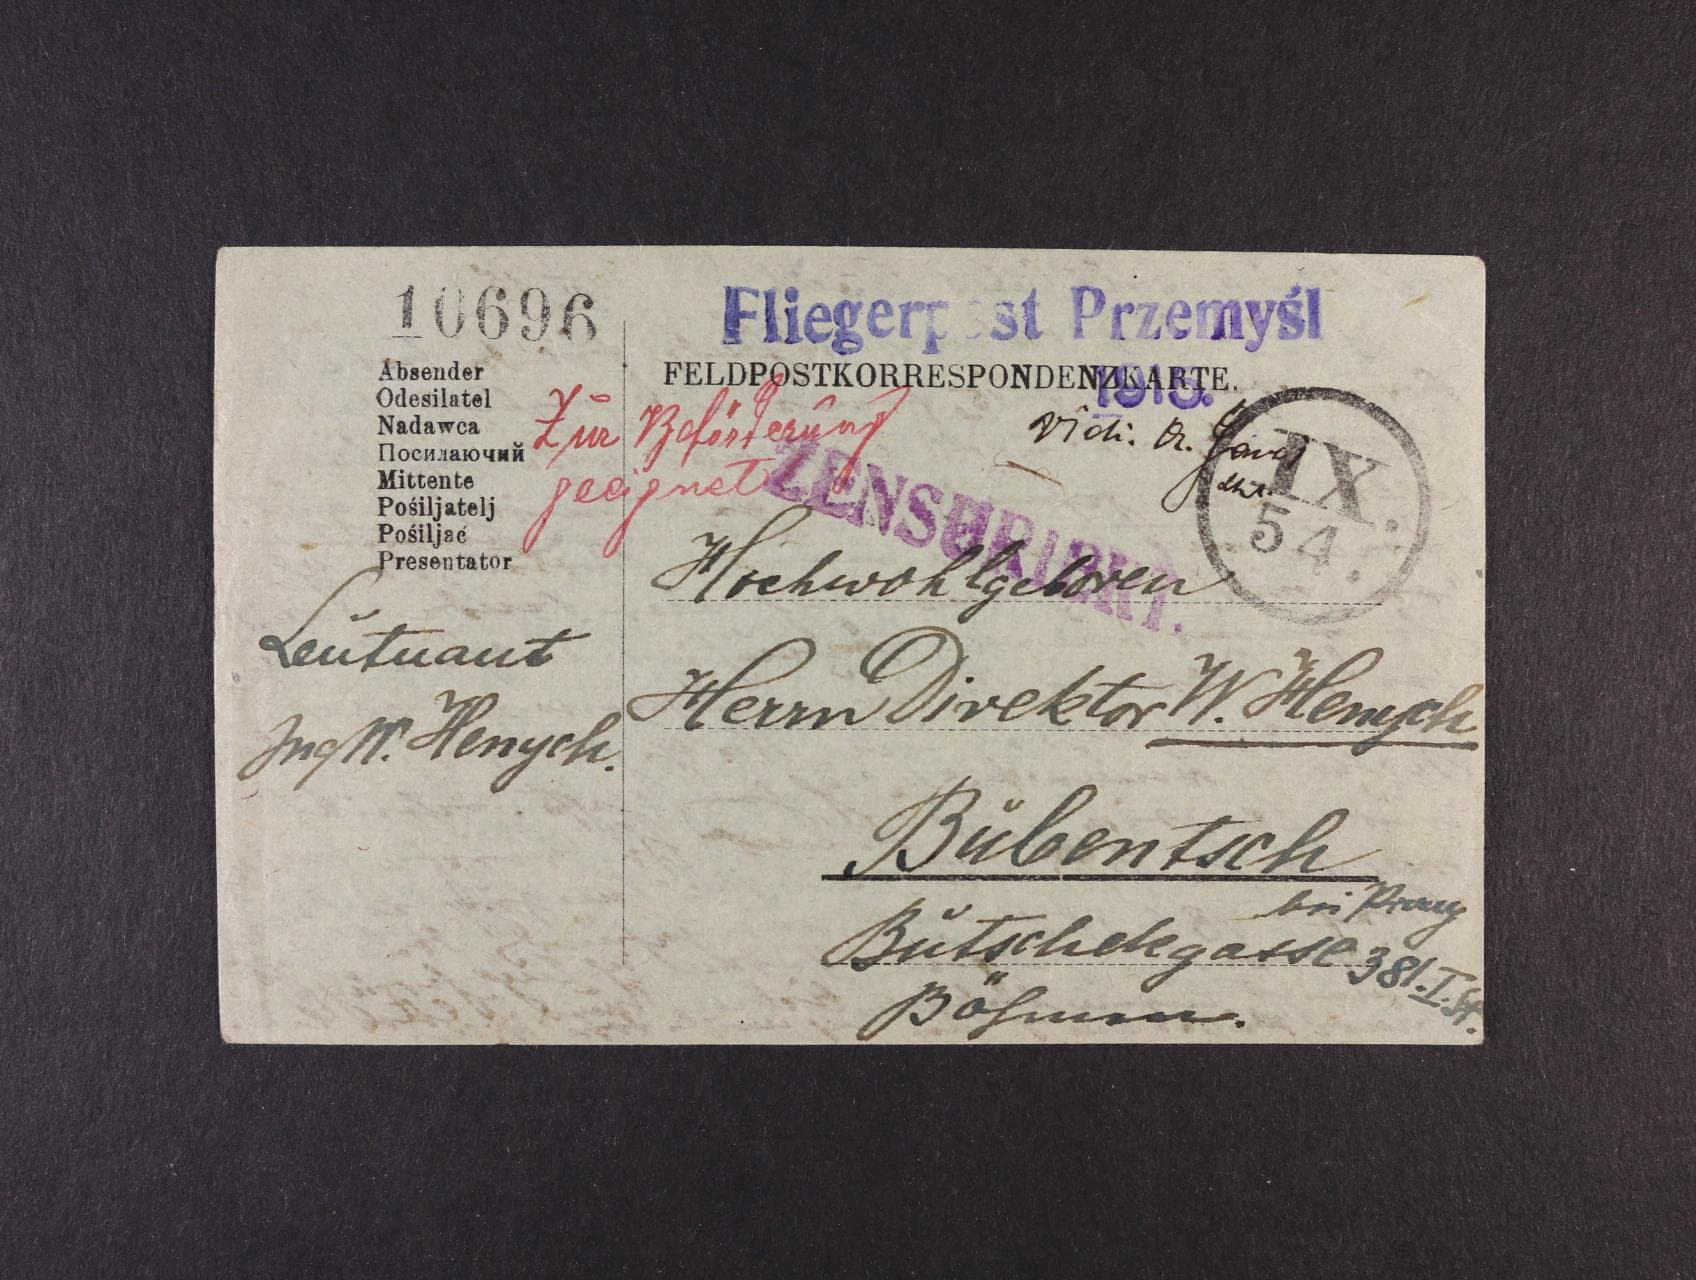 10696
Fliegerpost Przemyśl
1915.
FELDPOSTKORRESPONDENZKARTE.
Absender
Odesilatel
Nadawca
Посилаючий
Mittente
Pošiljatelj
Pošiljač
Presentator
Zur Beförderung
geeignet
Vidi. Dr.
IX.
54.
ZENSURIERT.
Leutnant
Ing W. Henych.
Hochwohlgeboren
Herrn Direktor W. Henych
Bubentsch
bei Prag
Butschekgasse 381. I. St.
Böhmen.